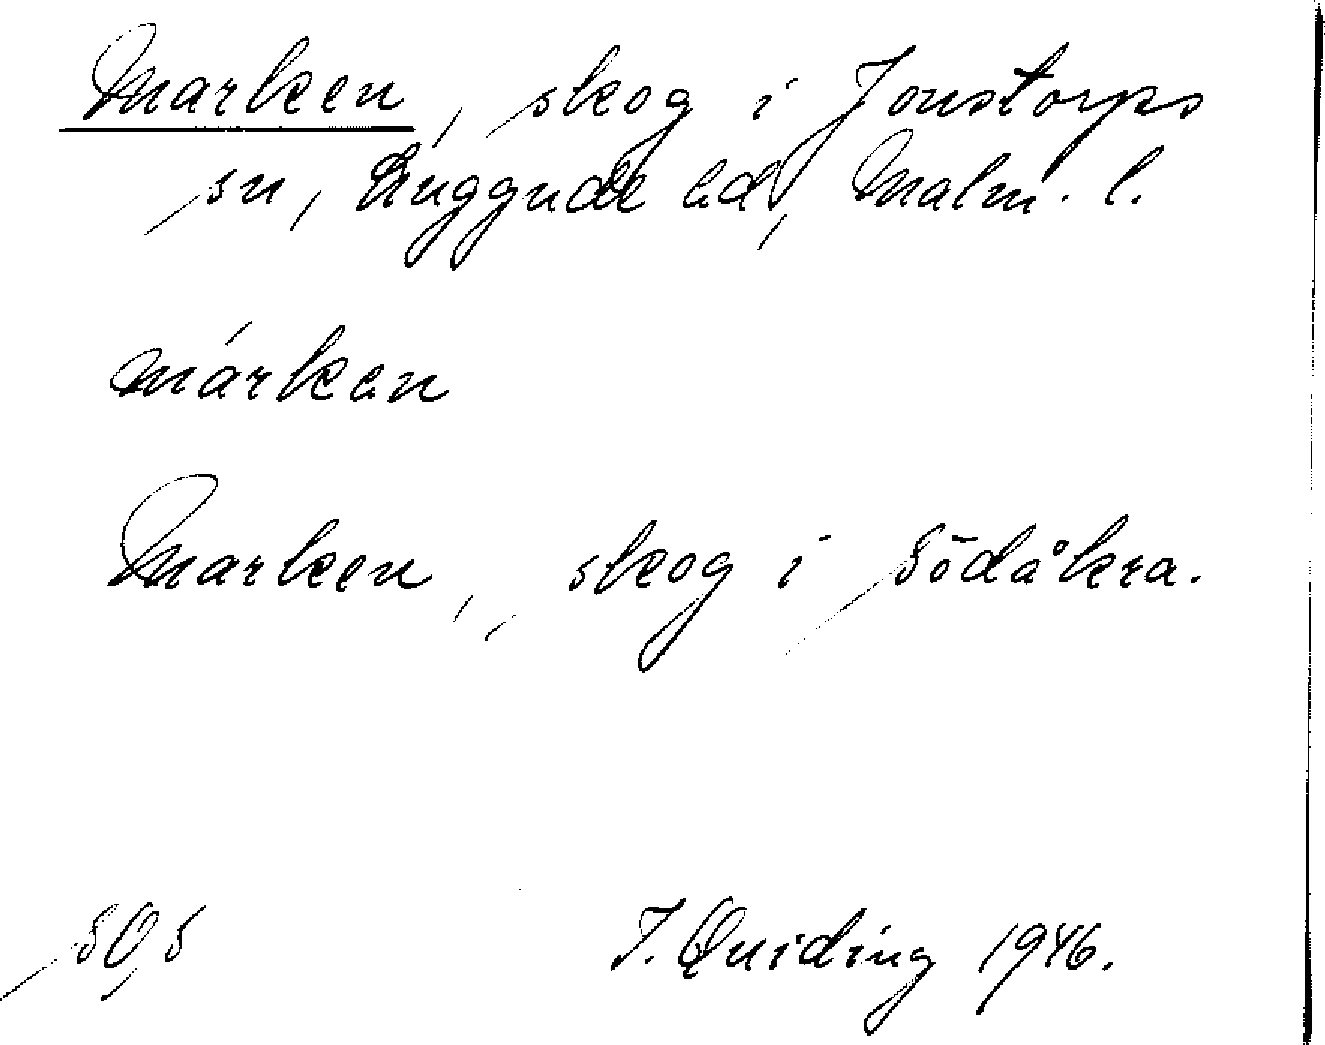 Marken, skog i Jonstorps
sn, Luggude hd, Malm. l.
márken
Marken, skog i Södåkra.
I. Quiding 1946.